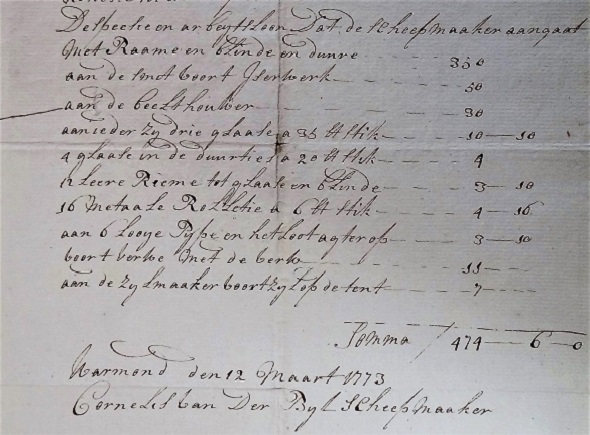 De specke en arbeytsloon Dat de scheepmaaker aangaat
met Raame en blinde en duure — 350
aan de smit voort Iserwerk — 50
aan de beelthouwer — 30
aan ieder zy drie glaase a 35 st stik — 10 — 10
4 glaase in de duurties a 20 st stik — 4
12 leere Rieme tot glaase en blinde — 3 — 10
16 metaale Rolletie a 6 st stik — 4 — 16
aan 6 looye Pype en het loot agter op — 3 — 10
voort verwe met de verw — 11 —
aan de zylmaaker voort zyl op de tent — 7 —
Somma / 474 — 6 — 0
Warmond den 12 Maart 1773
Cornelis van Der Byl scheepmaaker